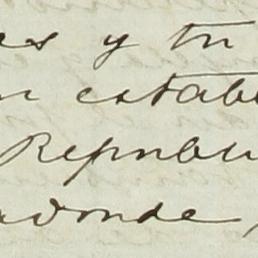 es y tu
n estable
Republi
adonde,